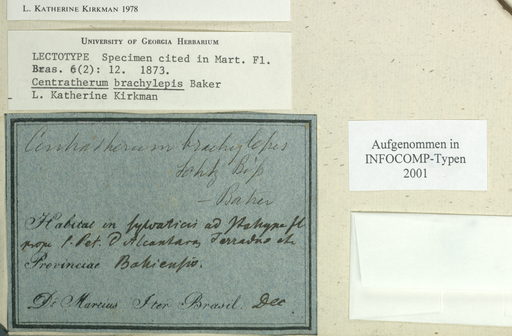 L. KATHERINE KIRKMAN 1978
UNIVERSITY OF GEORGIA HERBARIUM
LECTOTYPE Specimen cited in Mart. Fl.
Bras. 6(2): 12. 1873.
Centratherum brachylepis Baker
L. Katherine Kirkman
Centratherum brachylepis
Schtz Bip
— Baker
Habitat in sylvaticis ad Itahype fl
prope S. Pet. D'Alcantara, Ferradas etc
Provinciae Bahiensis.
Dr Martius Iter Brasil. Dec
Aufgenommen in
INFOCOMP-Typen
2001